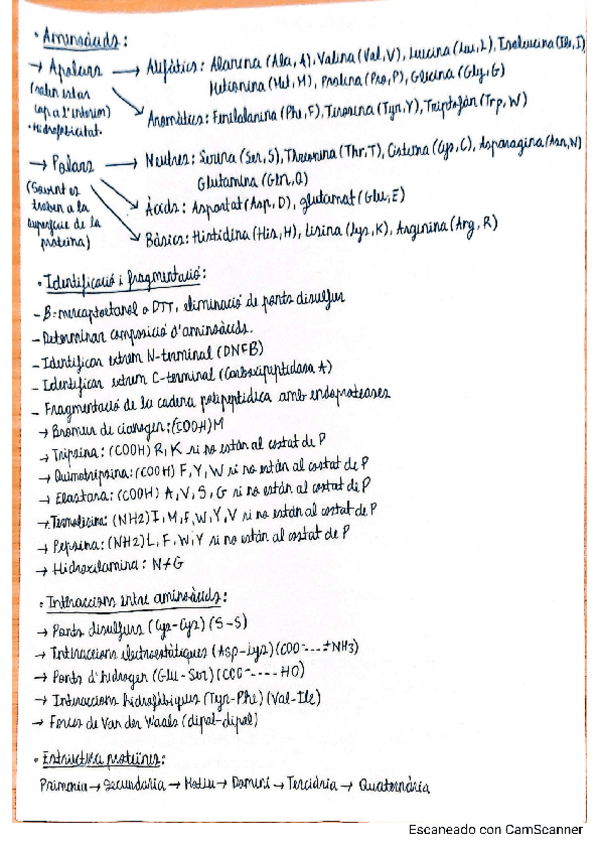 • Aminoàcids:
→ Apolars → Alifàtics: Alanina (Ala, A), Valina (Val, V), Leucina (Leu, L), Isoleucina (Ile, I)
(solen estar Metionina (Met, M), Prolina (Pro, P), Glicina (Gly, G)
cap a l'interior)
• Hidrofobicitat. Aromàtics: Fenilalanina (Phe, F), Tirosina (Tyr, Y), Triptofàn (Trp, W)
→ Polars → Neutres: Serina (Ser, S), Threonina (Thr, T), Cisteïna (Cys, C), Asparagina (Asn, N)
(Sovint es Glutamina (Gln, Q)
troben a la Àcids: Aspartat (Asp, D), glutamat (Glu, E)
superfície de la
proteïna) Bàsics: Histidina (His, H), Lisina (Lys, K), Arginina (Arg, R)
• Identificació i fragmentació:
- B-mercaptoetanol o DTT, eliminació de ponts disulfur
- Determinar composició d'aminoàcids.
- Identificar extrem N-terminal (DNFB)
- Identificar extrem C-terminal (Carboxipeptidasa A)
- Fragmentació de la cadena polipeptídica amb endoproteases
→ Bromur de cianogen: (COOH) M
→ Tripsina: (COOH) R, K si no están al costat de P
→ Quimotripsina: (COOH) F, Y, W si no están al costat de P
→ Elastasa: (COOH) A, V, S, G si no están al costat de P
→ Termolisina: (NH2) I, M, F, W, Y, V si no están al costat de P
→ Pepsina: (NH2) L, F, W, Y si no están al costat de P
→ Hidroxilamina: N≠G
• Interaccions entre aminoàcids:
→ Ponts disulfurs (Cys-Cys) (S-S)
→ Interaccions electroestàtiques (Asp-Lys) (COO⁻---⁺NH3)
→ Ponts d'hidrogen (Glu-Ser) (COO⁻----HO)
→ Interaccions hidrofòbiques (Tyr-Phe) (Val-Ile)
→ Forces de Van der Waals (dipol-dipol)
• Estructura proteïnes:
Primària → Secundària → Motiu → Domini → Terciària → Quaternària
Escaneado con CamScanner